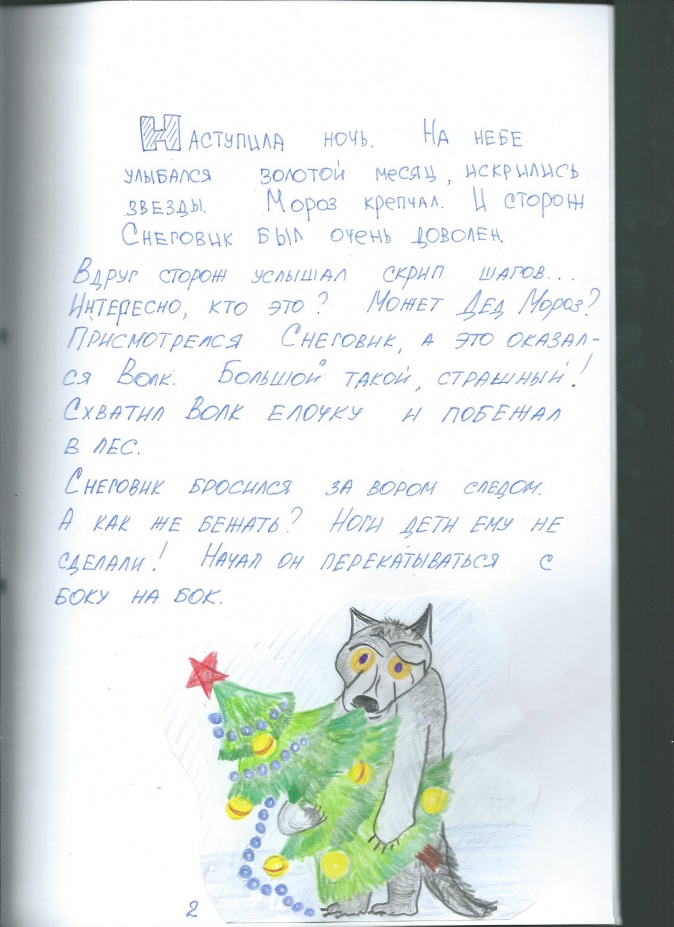 Наступила ночь. На небе
улыбался золотой месяц, искрились
звезды. Мороз крепчал. И сторож
Снеговик был очень доволен.
Вдруг сторож услышал скрип шагов...
Интересно, кто это? Может Дед Мороз?
Присмотрелся Снеговик, а это оказал-
ся Волк. Большой такой, страшный!
Схватил Волк елочку и побежал
в лес.
Снеговик бросился за вором следом.
А как же бежать? Ноги дети ему не
сделали! Начал он перекатываться с
боку на бок.
2